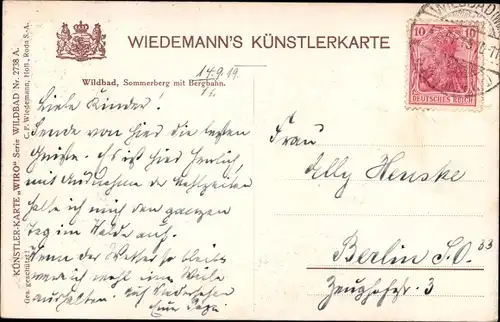 WIEDEMANN'S KÜNSTLERKARTE
WILDBAD
10 10
DEUTSCHES REICH
Wildbad, Sommerberg mit Bergbahn.
14.9.19.
Liebe Kinder!
Sende von hier die besten
Grüße. Es ist hier herrlich,
mit Ausnahme der Mahlzeiten
halte ich mich den ganzen
Tag im Walde auf.
Wenn der Wetter so bleibt
werde ich wohl eine Weile
aushalten. Auf Wiedersehen
Euer Papa
Frau
Elly Henske
Berlin S.O. 33
Zeughofstr. 3
KÜNSTLER-KARTE „WIRO" Serie WILDBAD Nr. 2738 A.
(Ges. geschützt.) C. F. Wiedemann, Hofl., Roda S.-A.